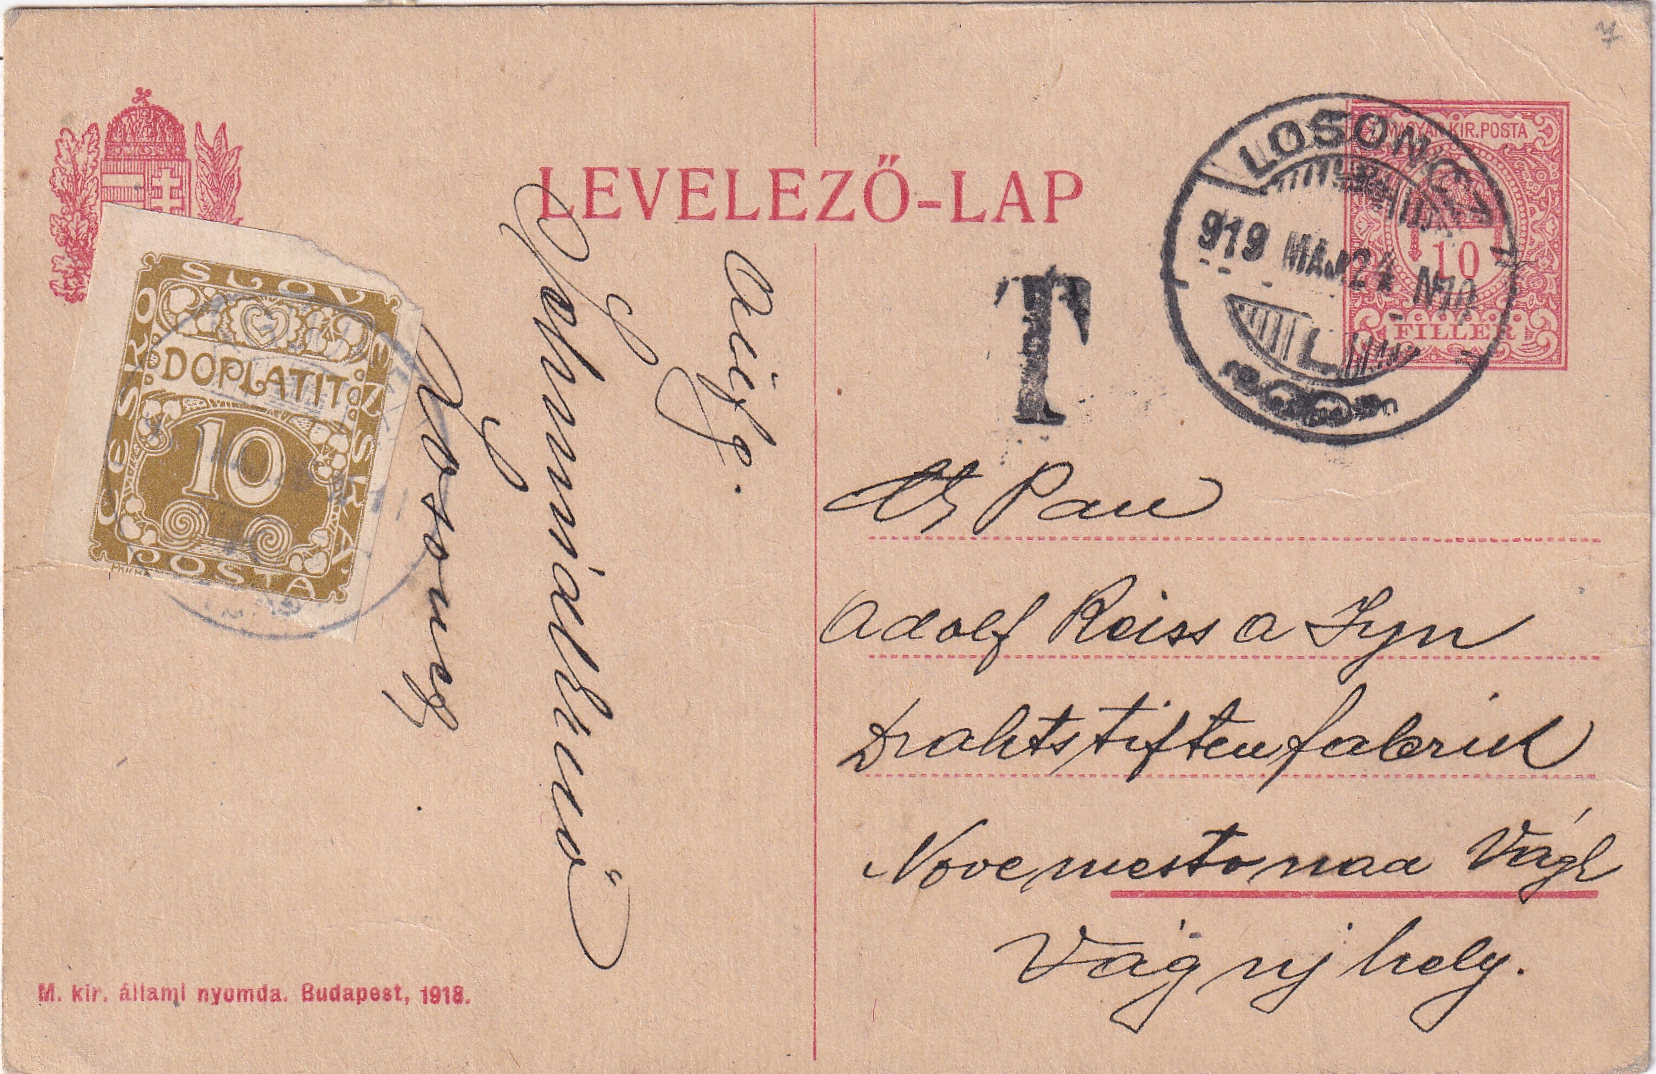 LEVELEZŐ-LAP
MAGYAR KIR. POSTA
10
FILLÉR
LOSONCZ
919 MAJ 24 N10
T
ČESKO-SLOVENSKÁ
DOPLATIT
10
POSTA
Aüfg.
Losoncz
Pan
Adolf Reiss a Syn
Drahtstiftenfabrik
Nove mesto naa Vágh
Vágujhely.
M. kir. állami nyomda. Budapest, 1918.